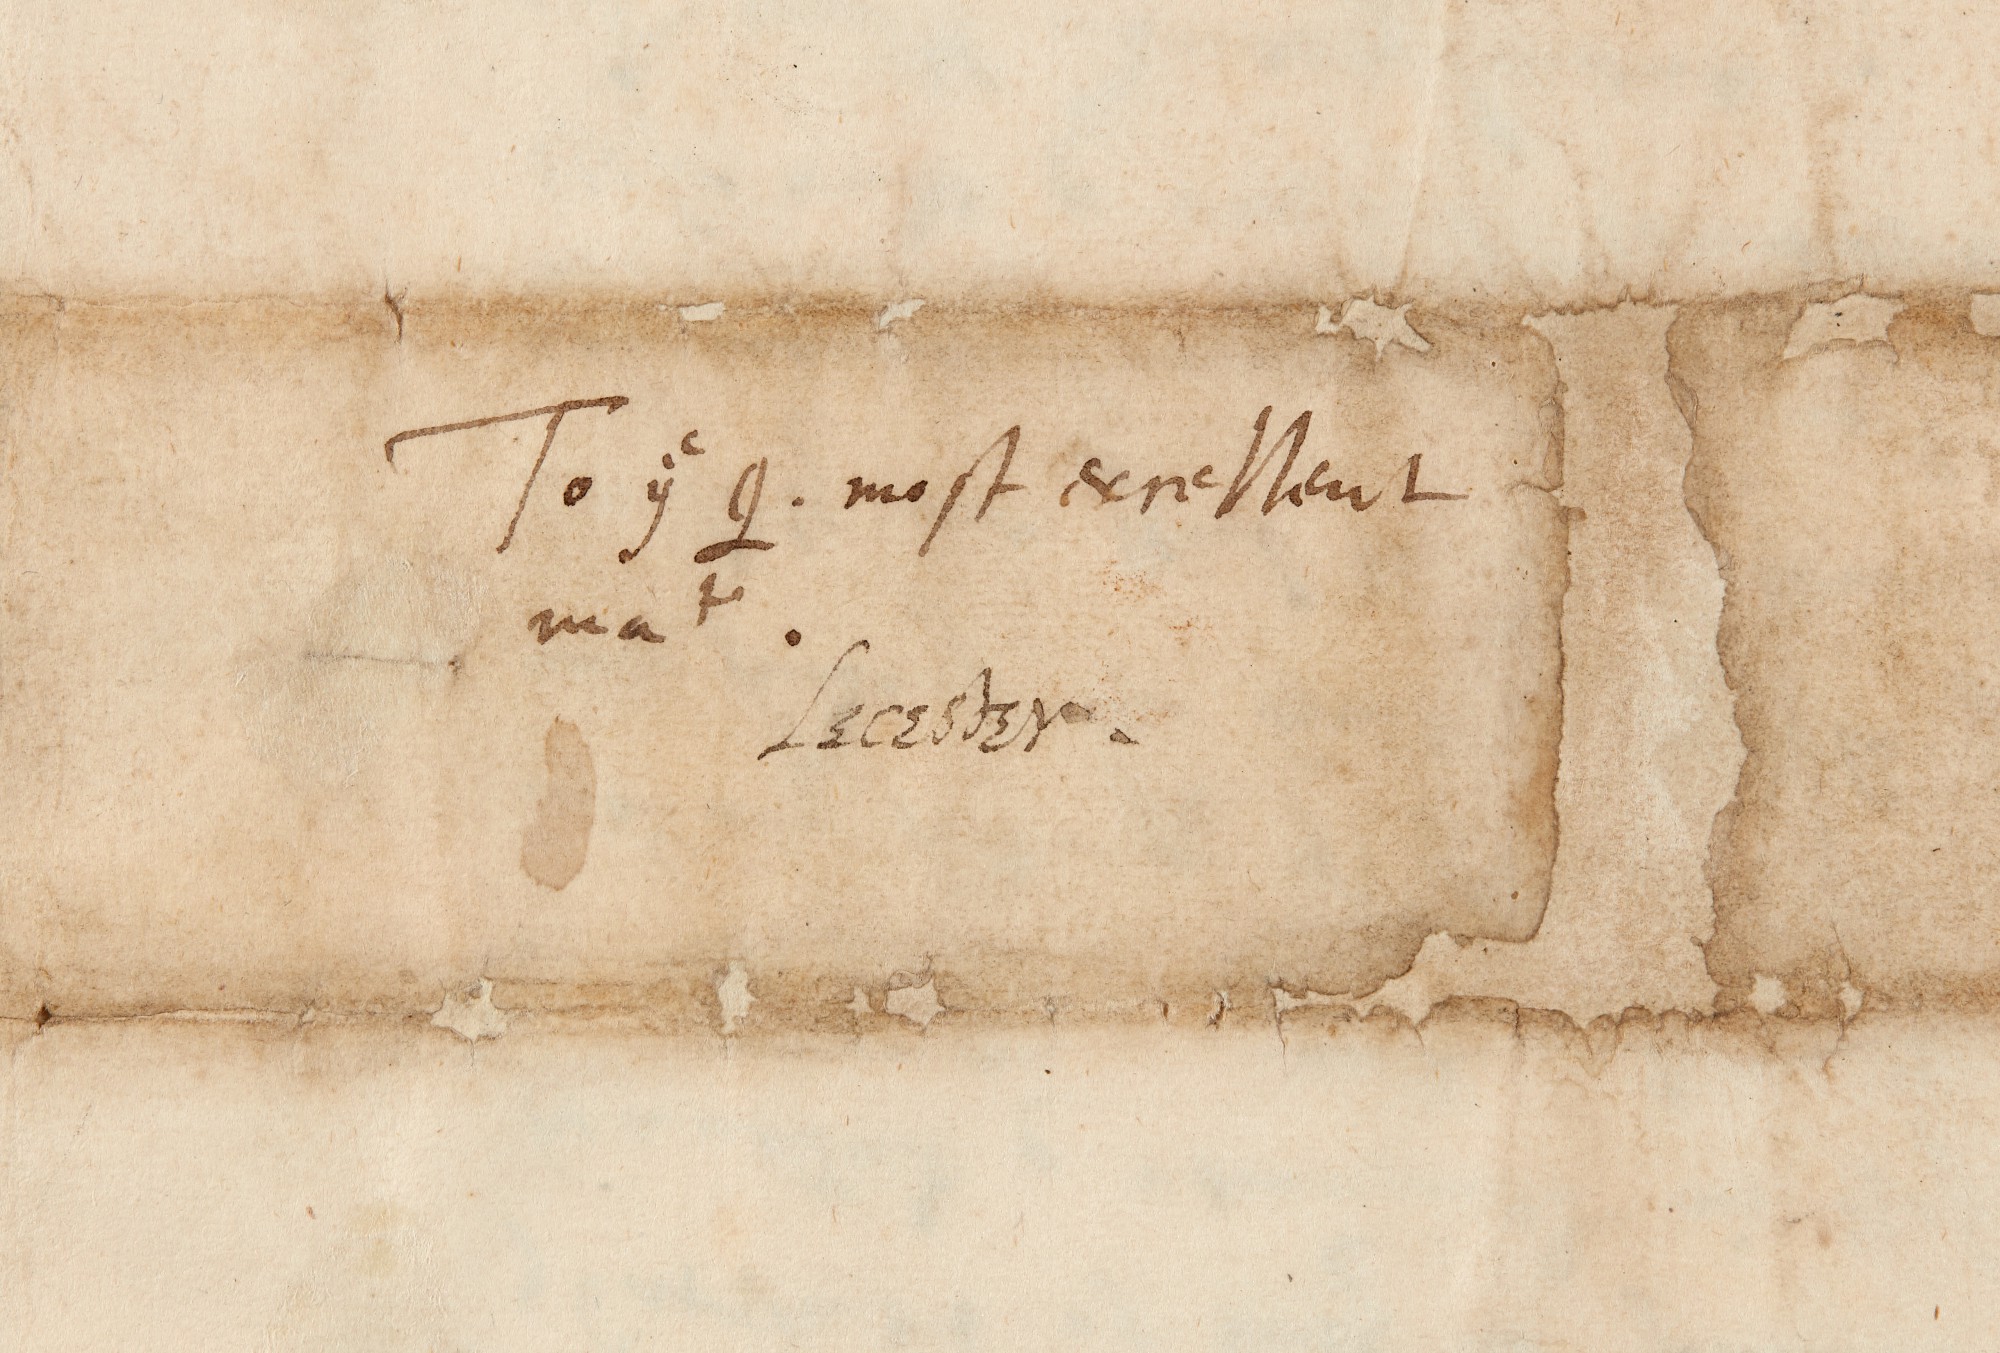 To yͤ Q. most excellent
maᵗⁱᵉ.
Lecester.